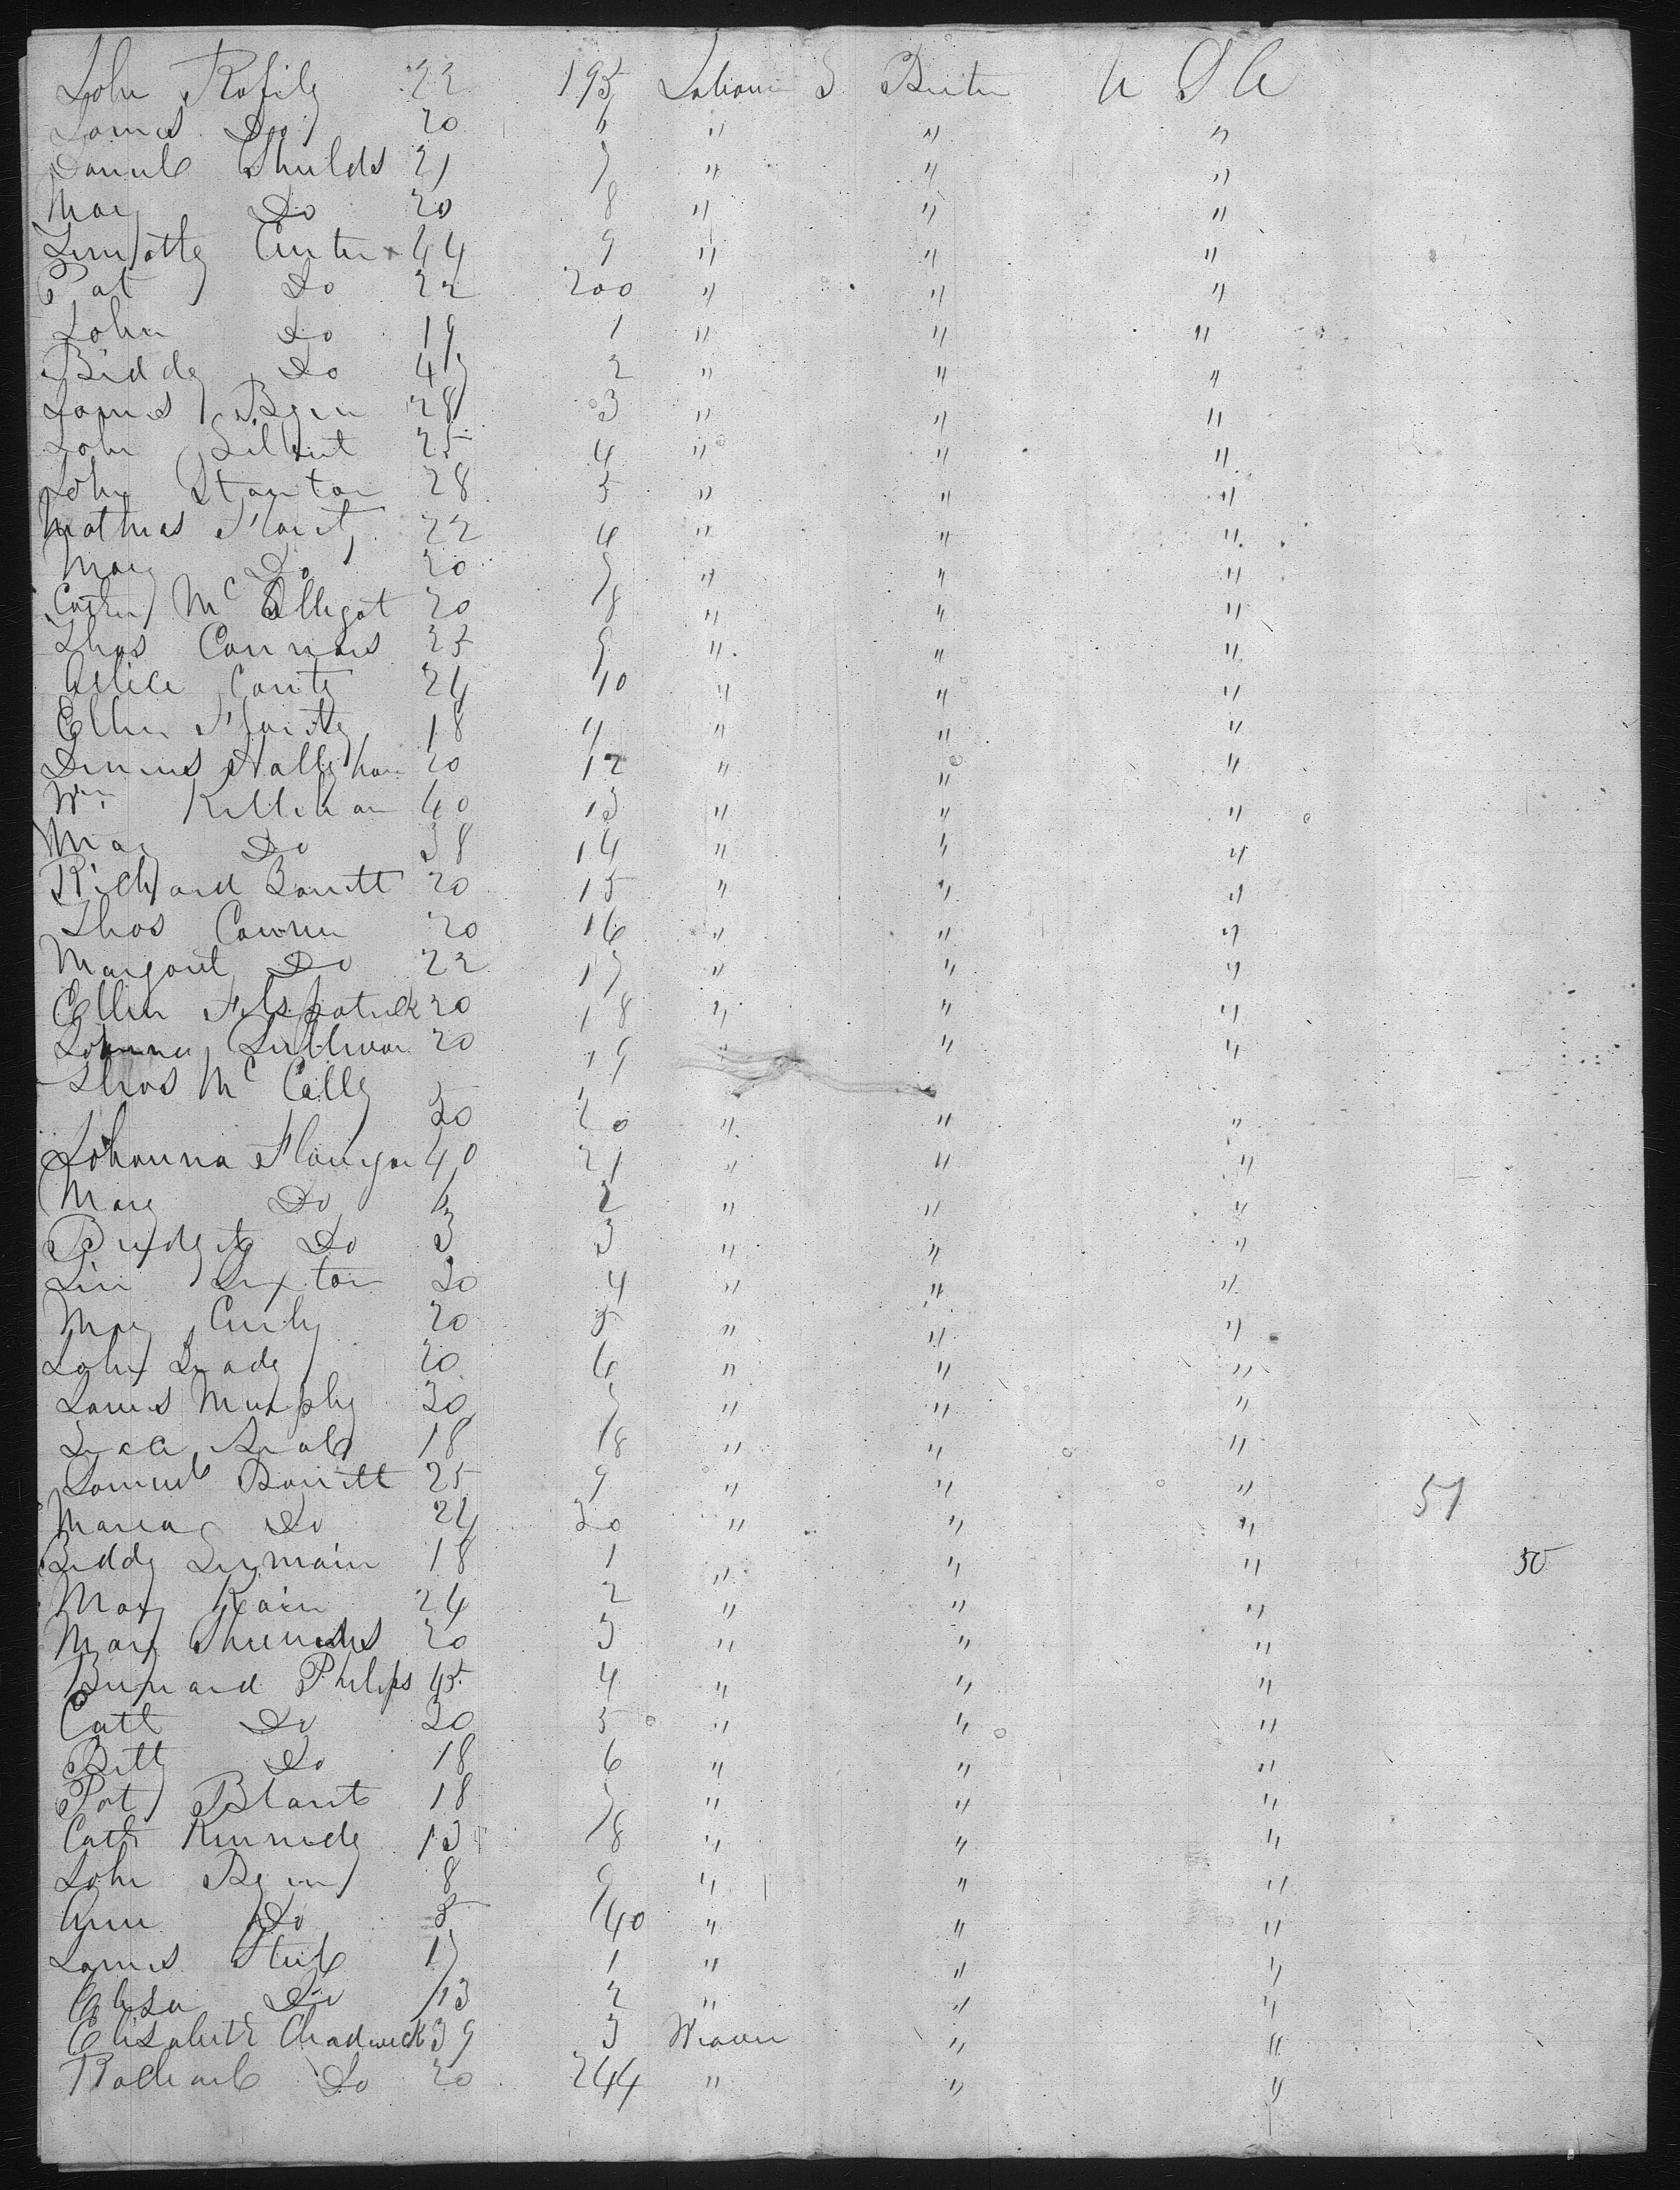 John Rafily 22 195 Labourers Britn U S A
James Do 20 6 " " "
Daniel Shulds 21 7 " " "
Mary Do 20 8 " " "
Timothy Curten 44 9 " " "
Pat Do 22 200 " " "
John Do 19 1 " " "
Biddy Do 47 2 " " "
James Byrn 28 3 " " "
John Gilbert 25 4 " " "
John Stanton 28 5 " " "
Mathias Flarity 22 6 " " "
Mary Do 20 7 " " "
Cathn McElligot 20 8 " " "
Thos Connors 25 9 " " "
Alice Conty 24 10 " " "
Ellen Flarity 18 11 " " "
Dennis Hallighan 20 12 " " "
Wm Killihan 40 13 " " "
Mary Do 38 14 " " "
Richard Barrett 20 15 " " "
Thos Conner 20 16 " " "
Margaret Do 22 17 " " "
Ellen Fitspatrick 20 18 " " "
Johanna Sullivan 20 19 " " "
Thos Mc Celly
30 20 " " "
Johanna Flanigan 40 21 " " "
Mary Do 6 2 " " "
Bridgit Do 3 3 " " "
Sexton 30 4 " " "
Mary Curly 20 5 " " "
John Leady 20 6 " " "
James Murphy 30 7 " " "
18 8 " " "
Samuel Barrett 25 9 " " "
51
Maria Do 24 30 " " "
Biddy Surmain 18 1 " " "
50
Mary Kain 24 2 " " "
Mary 20 3 " " "
Burnard Philips 45 4 " " "
Cath Do 30 5 " " "
Bitty Do 18 6 " " "
Pat Blant 18 7 " " "
Cath Kennedy 13 8 " " "
John Byrn 8 9 " " "
Ann Do 5 40 " " "
James Steel 17 1 " " "
Elisa Do 13 2 " " "
Elisabeth Chadwick 39 3 Weaver " "
Rachael Do 20 244 " " "